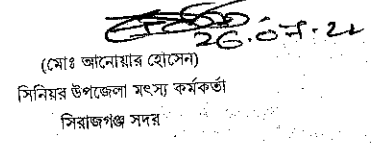 26.05.21
(মোঃ আনোয়ার হোসেন)
সিনিয়র উপজেলা মৎস্য কর্মকর্তা
সিরাজগঞ্জ সদর